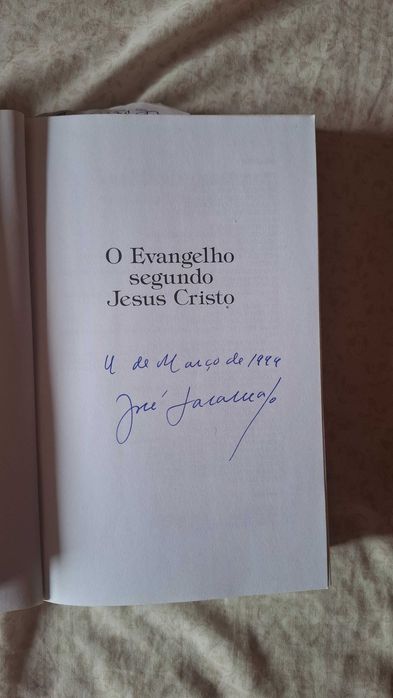 O Evangelho
segundo
Jesus Cristo
de Março de 1999
José Saramago